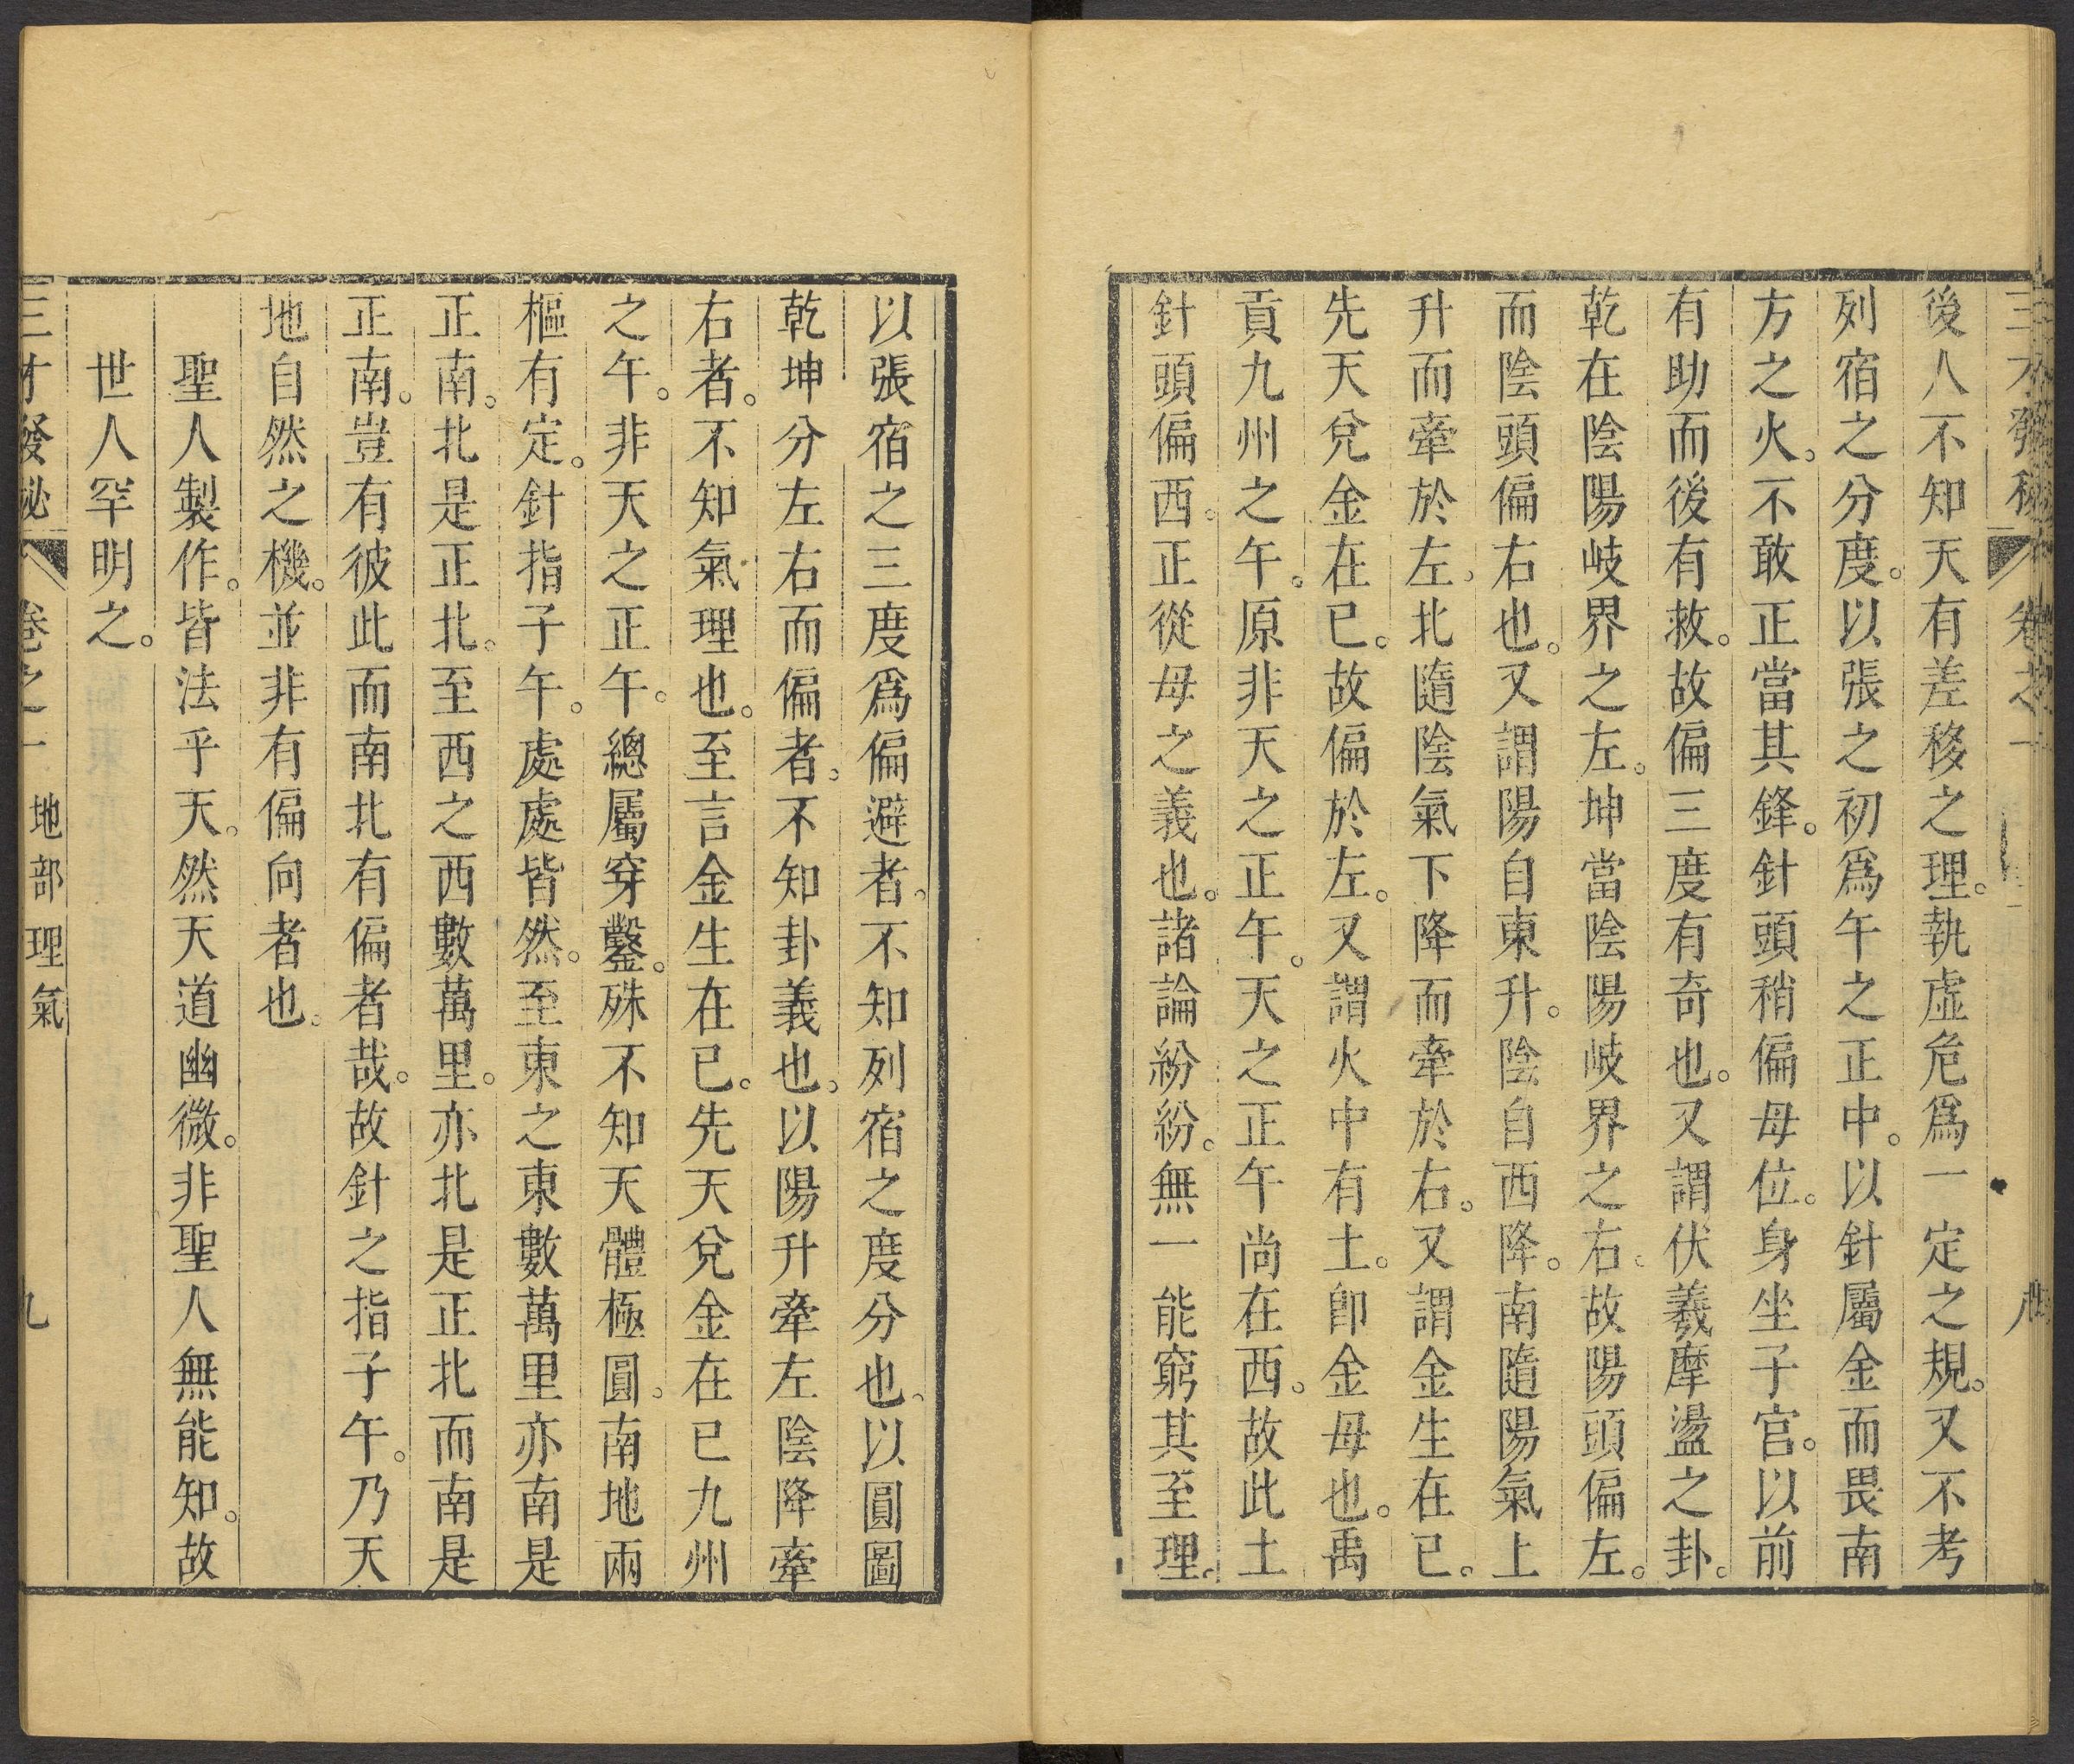 三才發秘 卷之一 八
後人不知天有差移之理。執虛危爲一定之規。又不考
列宿之分度。以張之初爲午之正中。以針屬金而畏南
方之火。不敢正當其鋒。針頭稍偏母位。身坐子官。以前
有助而後有救。故偏三度有奇也。又謂伏羲摩盪之卦。
乾在陰陽岐界之左。坤當陰陽岐界之右。故陽頭偏左。
而陰頭偏右也。又謂陽自東升。陰自西降。南隨陽氣上
升而牽於左。北隨陰氣下降而牽於右。又謂金生在巳。
先天兌金在巳。故偏於左。又謂火中有土。卽金母也。禹
貢九州之午。原非天之正午。天之正午尚在西。故此土
針頭偏西。正從母之義也。諸論紛紛。無一能窮其至理。
以張宿之三度爲偏避者。不知列宿之度分也。以圓圖
乾坤分左右而偏者。不知卦義也。以陽升牽左陰降牽
右者。不知氣理也。至言金生在巳。先天兌金在巳九州
之午。非天之正午。總屬穿鑿。殊不知天體極圓。南地兩
樞有定。針指子午。處處皆然。至東之東數萬里亦南是
正南。北是正北。至西之西數萬里。亦北是正北而南是
正南。豈有彼此而南北有偏者哉。故針之指子午。乃天
地自然之機。並非有偏向者也。
聖人製作。皆法乎天。然天道幽微。非聖人無能知。故
世人罕明之。
三才發秘 卷之一 地部 理氣 九